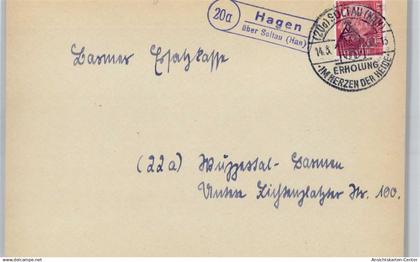 20a
Hagen
über Soltau (Han)
(20a) SOLTAU (HAN)
14.5.
ERHOLUNG
IM HERZEN DER HEIDE
Barmer Ersatzkasse
(22a) Wuppertal-Barmen
Untere Lichtenplatzer Str. 100.
www.delcampe.net
Ansichtskarten-Center